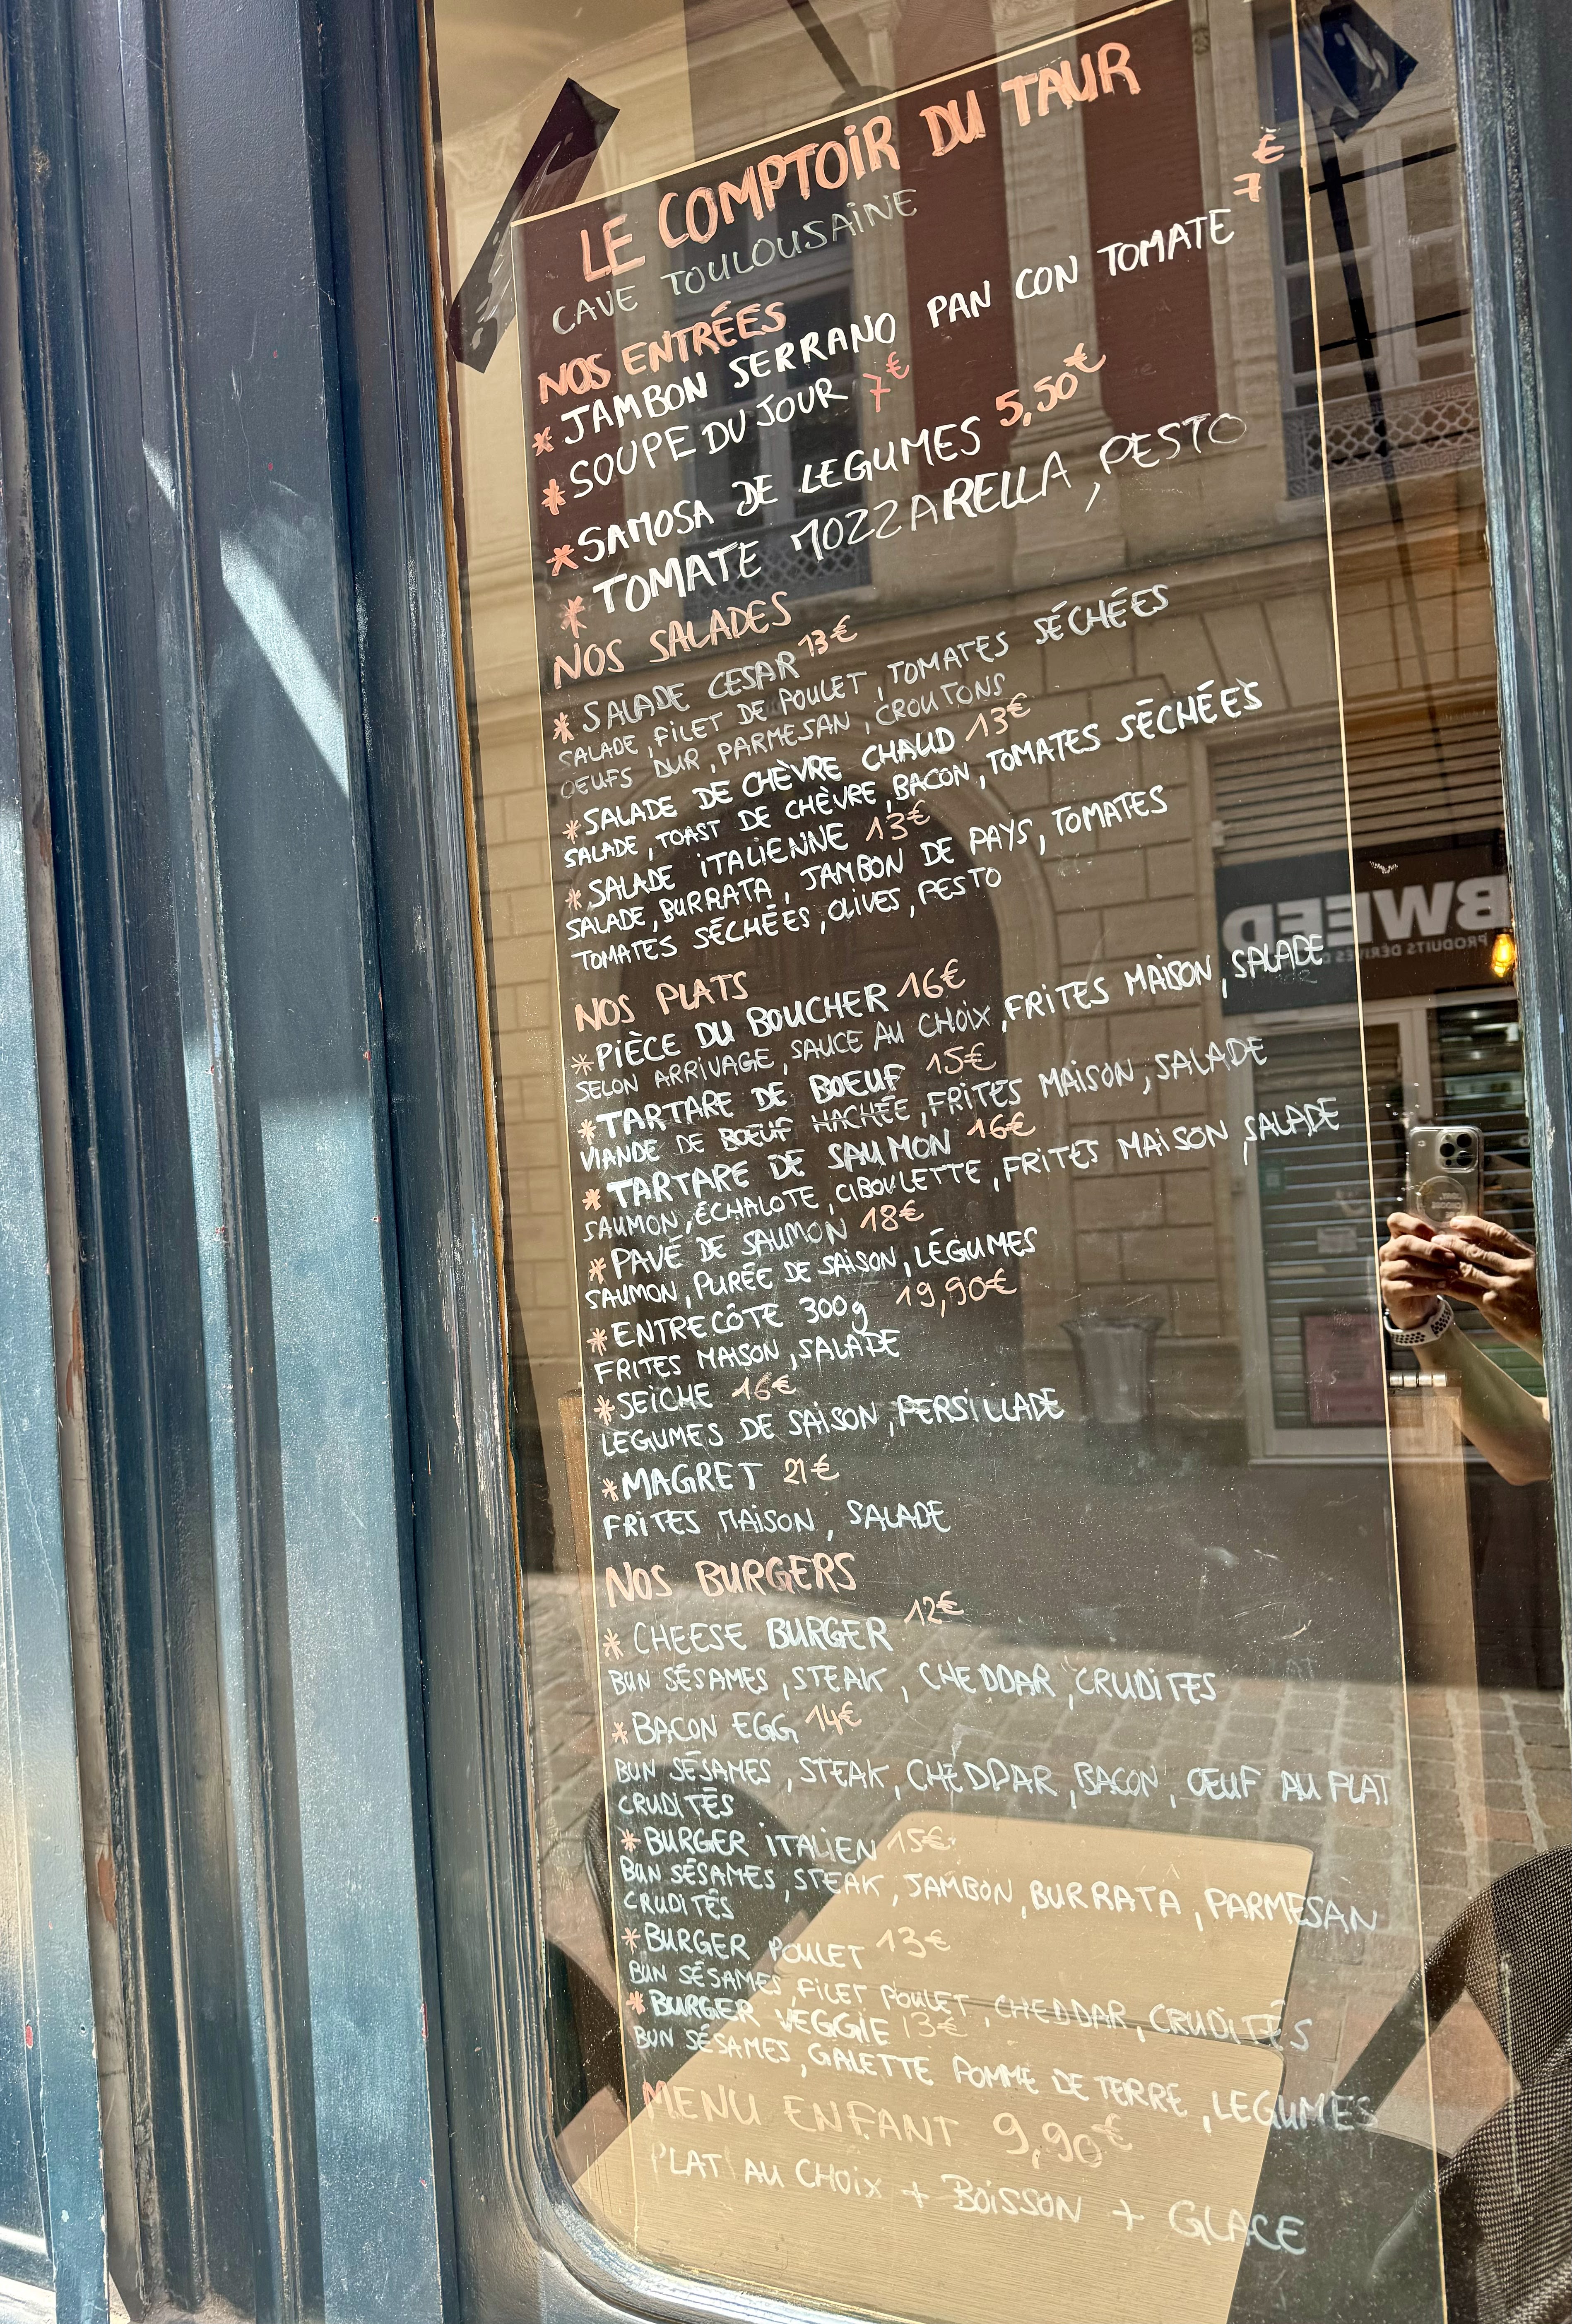 LE COMPTOIR DU TAUR
CAVE TOULOUSAINE
NOS ENTRÉES
* JAMBON SERRANO PAN CON TOMATE 7€
* SOUPE DU JOUR 7€
* SAMOSA DE LEGUMES 5,50€
* TOMATE MOZZARELLA, PESTO
NOS SALADES
* SALADE CESAR 13€
SALADE, FILET DE POULET, TOMATES SÉCHÉES
OEUFS DUR, PARMESAN, CROUTONS
* SALADE DE CHÈVRE CHAUD 13€
SALADE, TOAST DE CHÈVRE, BACON, TOMATES SÉCHÉES
* SALADE ITALIENNE 13€
SALADE, BURRATA, JAMBON DE PAYS, TOMATES
TOMATES SÉCHÉES, OLIVES, PESTO
NOS PLATS
* PIÈCE DU BOUCHER 16€
SELON ARRIVAGE, SAUCE AU CHOIX, FRITES MAISON, SALADE
* TARTARE DE BOEUF 15€
VIANDE DE BOEUF HACHÉE, FRITES MAISON, SALADE
* TARTARE DE SAUMON 16€
SAUMON, ÉCHALOTE, CIBOULETTE, FRITES MAISON, SALADE
* PAVÉ DE SAUMON 18€
SAUMON, PURÉE DE SAISON, LÉGUMES
* ENTRECÔTE 300g 19,90€
FRITES MAISON, SALADE
* SEICHE 16€
LEGUMES DE SAISON, PERSILLADE
* MAGRET 21€
FRITES MAISON, SALADE
NOS BURGERS
* CHEESE BURGER 12€
BUN SÉSAMES, STEAK, CHEDDAR, CRUDITES
* BACON EGG 14€
BUN SÉSAMES, STEAK, CHEDDAR, BACON, OEUF AU PLAT
CRUDITÉS
* BURGER ITALIEN 15€
BUN SÉSAMES, STEAK, JAMBON, BURRATA, PARMESAN
CRUDITÉS
* BURGER POULET 13€
BUN SÉSAMES, FILET POULET, CHEDDAR, CRUDITÉS
* BURGER VEGGIE 13€
BUN SÉSAMES, GALETTE POMME DE TERRE, LEGUMES
MENU ENFANT 9,90€
PLAT AU CHOIX + BOISSON + GLACE
BWEED
PRODUITS DÉRIVÉS